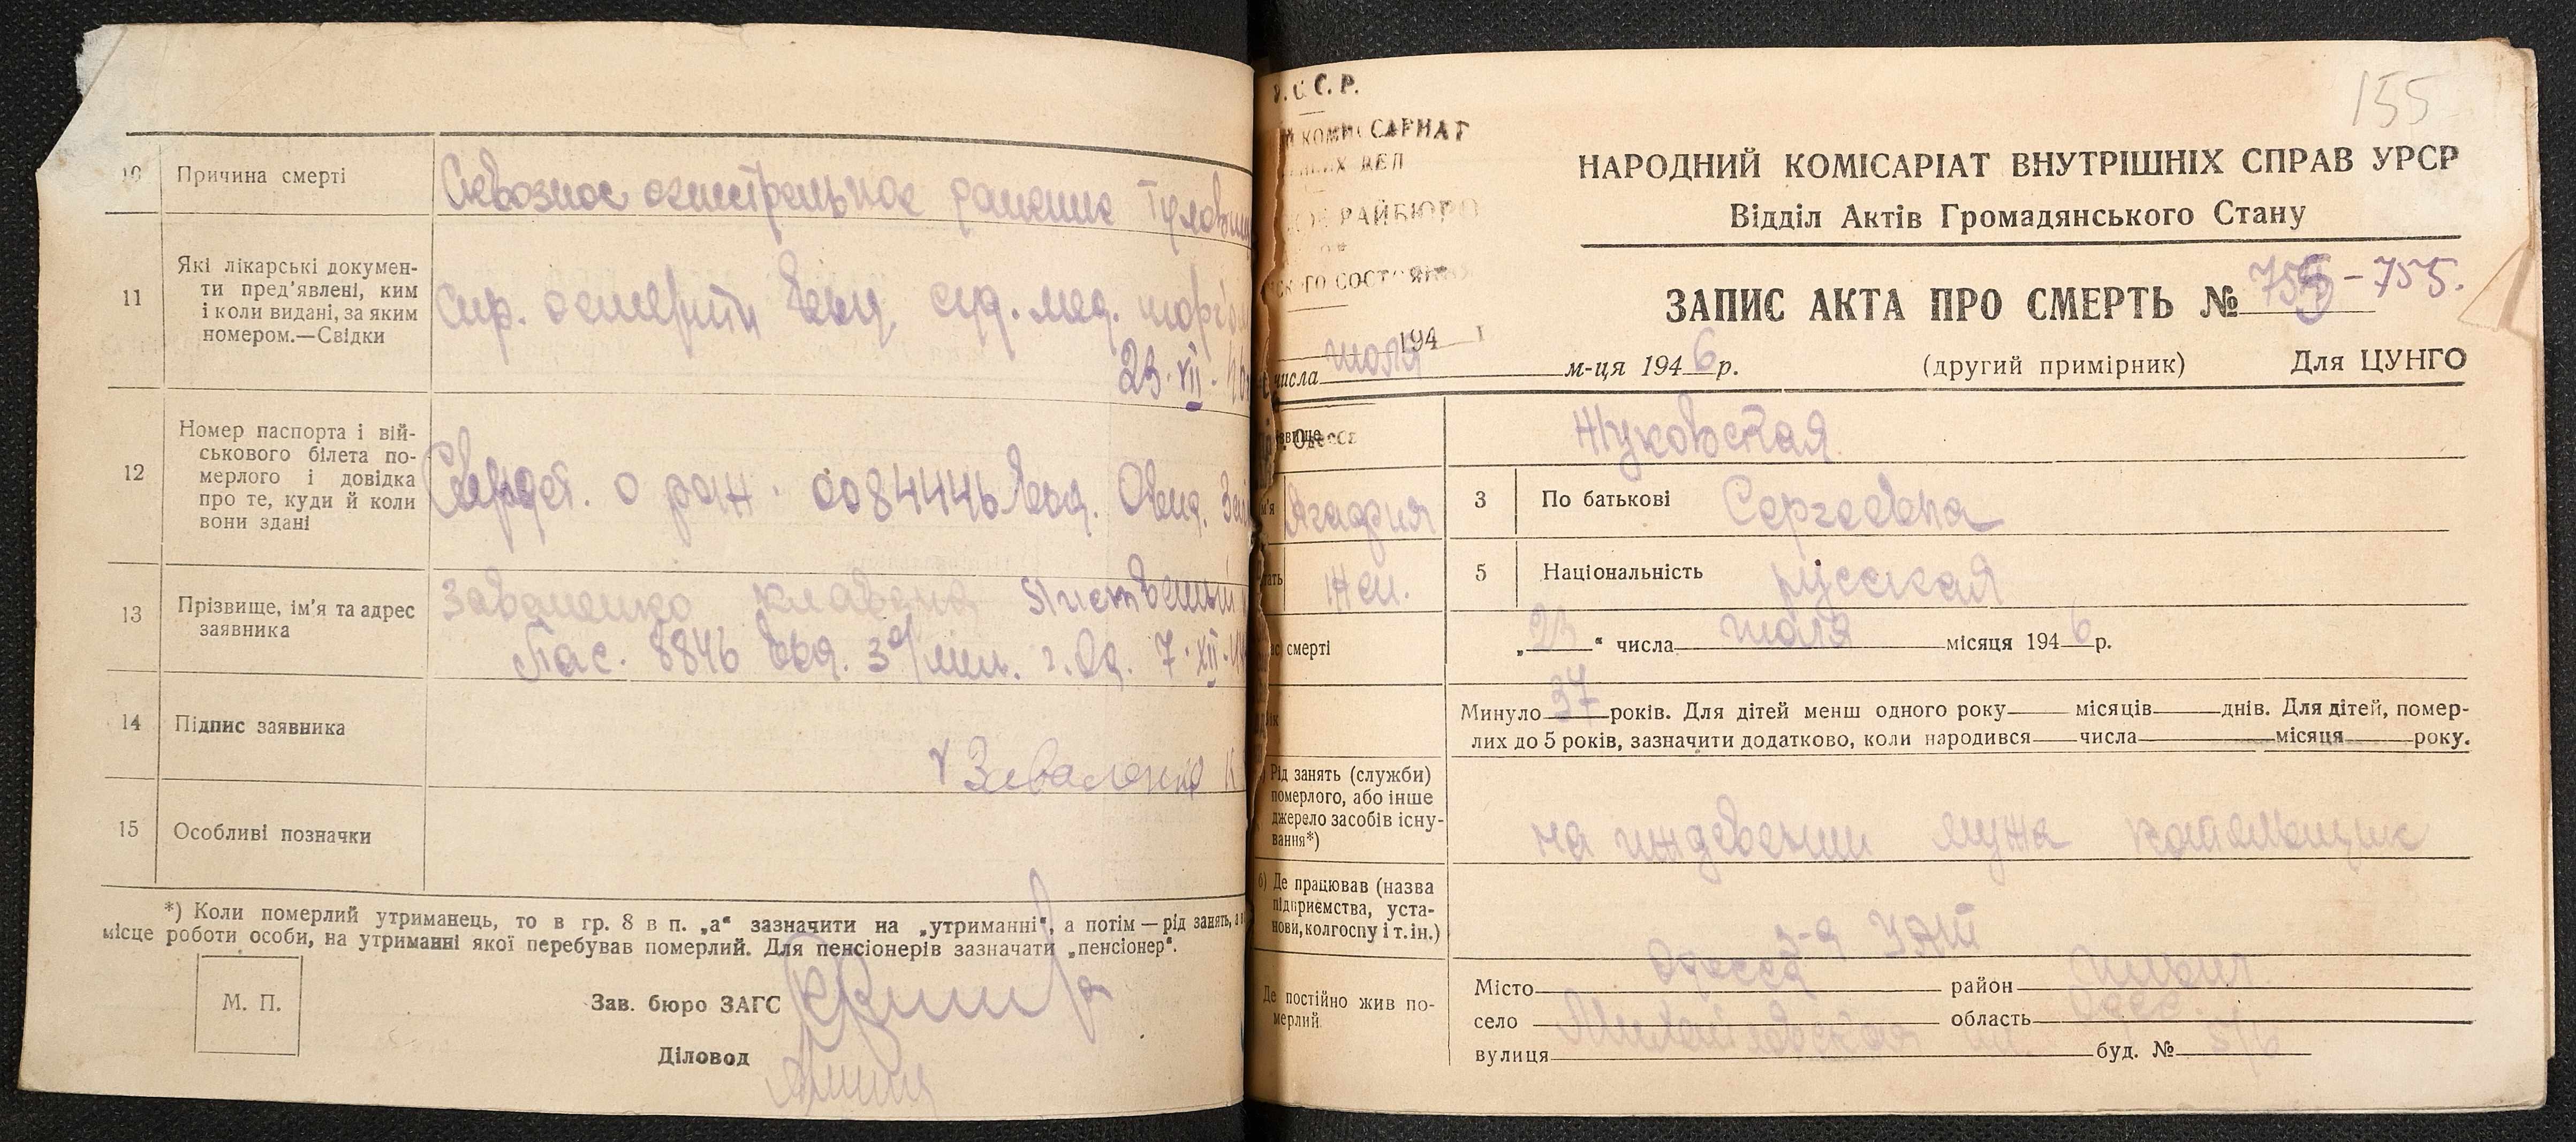 10 Причина смерти Сквозное огнестрельное ранение
11 Які лікарські докумен-
ти пред'явлені, ким
і коли видані, за яким
номером.—Свідки
спр. выд. суд. мед.
23.VII.46
12 Номер паспорта і вій-
ськового білета по-
мерлого і довідка
про те, куди й коли
вони здані
о 0084446 выд.
13 Прізвище, ім'я та адрес
заявника
Заваленко
Пас. 8846 выд. 3 о/мил. г. Од. 7.XII.
14 Підпис заявника
Заваленко К
15 Особливі позначки
*) Коли померлий утриманець, то в гр. 8 в п. „а“ зазначити на „утриманні“, а потім — рід занять, а
місце роботи особи, на утриманні якої перебував померлий. Для пенсіонерів зазначати „пенсіонер“.
М. П.
Зав. бюро ЗАГС
Діловод
155
С. Р.
КОМИССАРИАТ
РАЙБЮРО
НАРОДНИЙ КОМІСАРІАТ ВНУТРІШНІХ СПРАВ УРСР
Відділ Актів Громадянського Стану
ЗАПИС АКТА ПРО СМЕРТЬ № 755 - 755.
194
числа июля м-ця 1946 р. (другий примірник) Для ЦУНГО
Одесса
Жуковская
Агафия 3 По батькові Сергеевна
Жен. 5 Національність русская
смерті „23“ числа июля місяця 1946 р.
Минуло 37 років. Для дітей менш одного року місяців днів. Для дітей, помер-
лих до 5 років, зазначити додатково, коли народився числа місяця року.
Рід занять (служби)
померлого, або інше
джерело засобів існу-
вання*)
на иждевении мужа
б) Де працював (назва
підприємства, уста-
нови, колгоспу і т. ін.)
3-я
Де постійно жив по-
мерлий
Місто Одесса район Ильич
село область Одес
вулиця Михайловская пл. буд. № 5/6